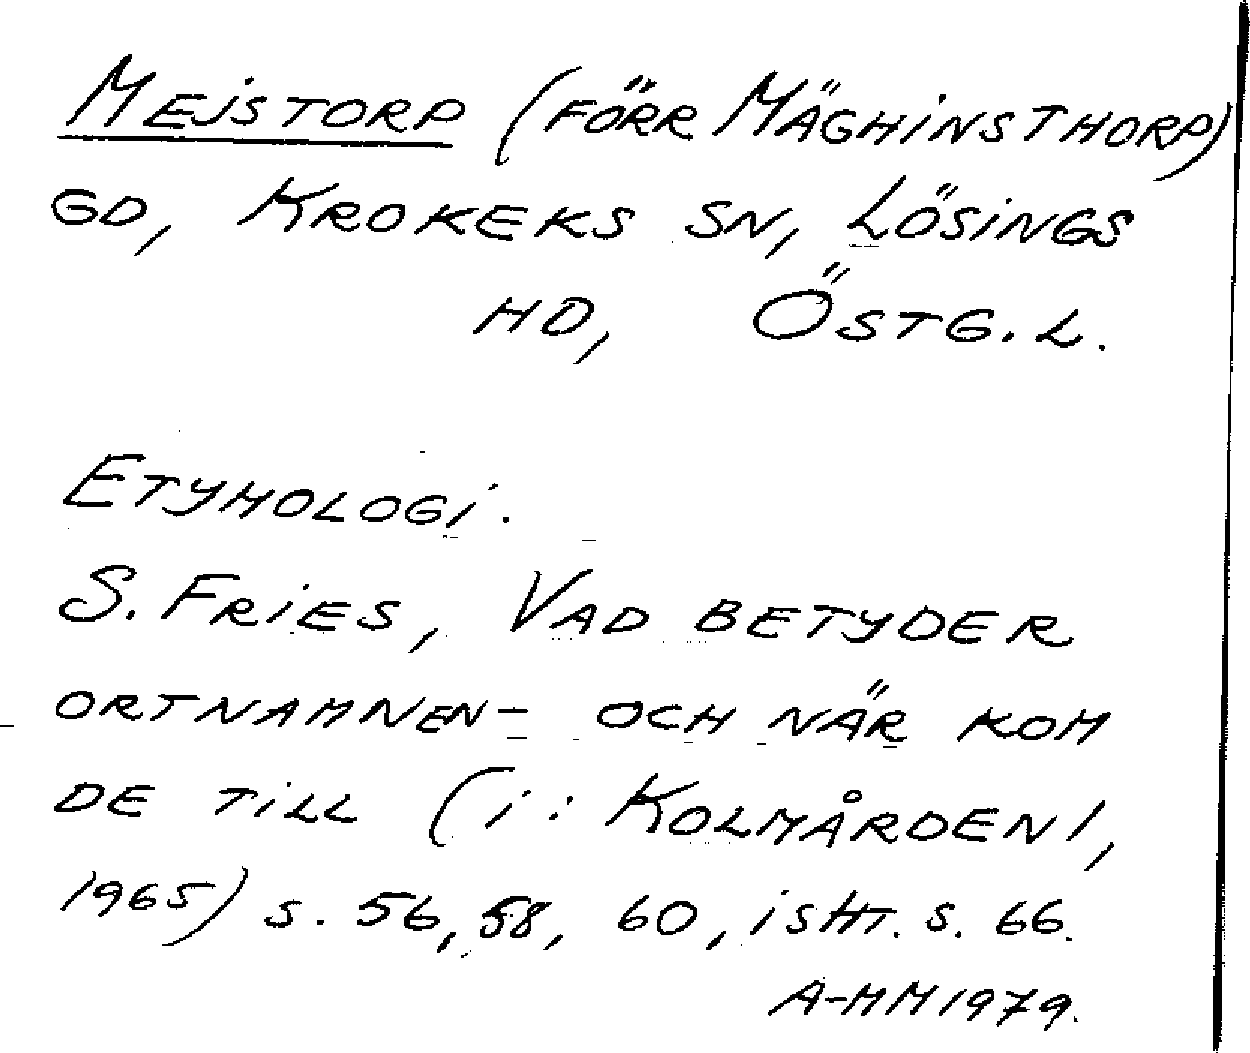 Mejstorp (förr Mäghinsthorp)
gd, Krokeks sn, Lösings
hd, Östg.l.
Etymologi.
S. Fries, Vad betyder
ortnamnen- och när kom
de till (i: Kolmården 1,
1965) s. 56, 58, 60, isht. s. 66.
A-MM 1979.